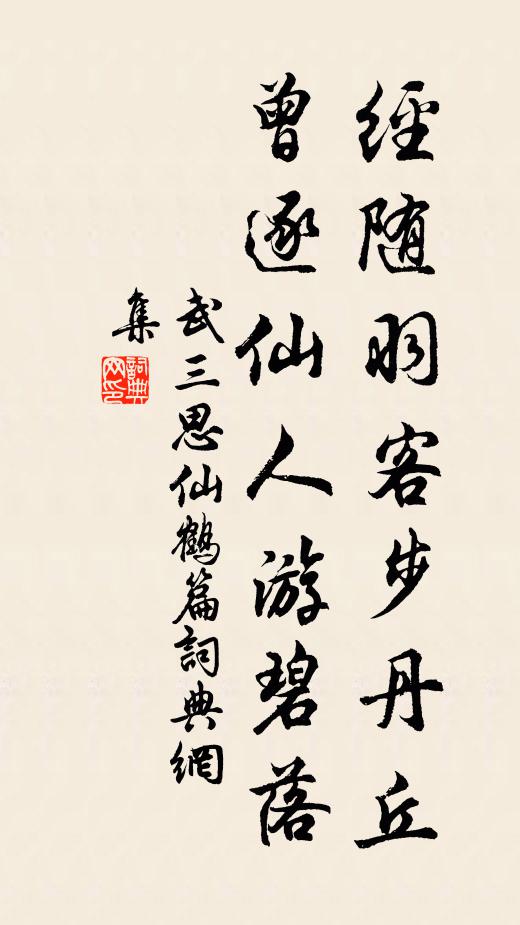 經随羽客步丹丘
曾逐仙人游碧落
武三思仙鶴篇詞典網
集
詞典
网印